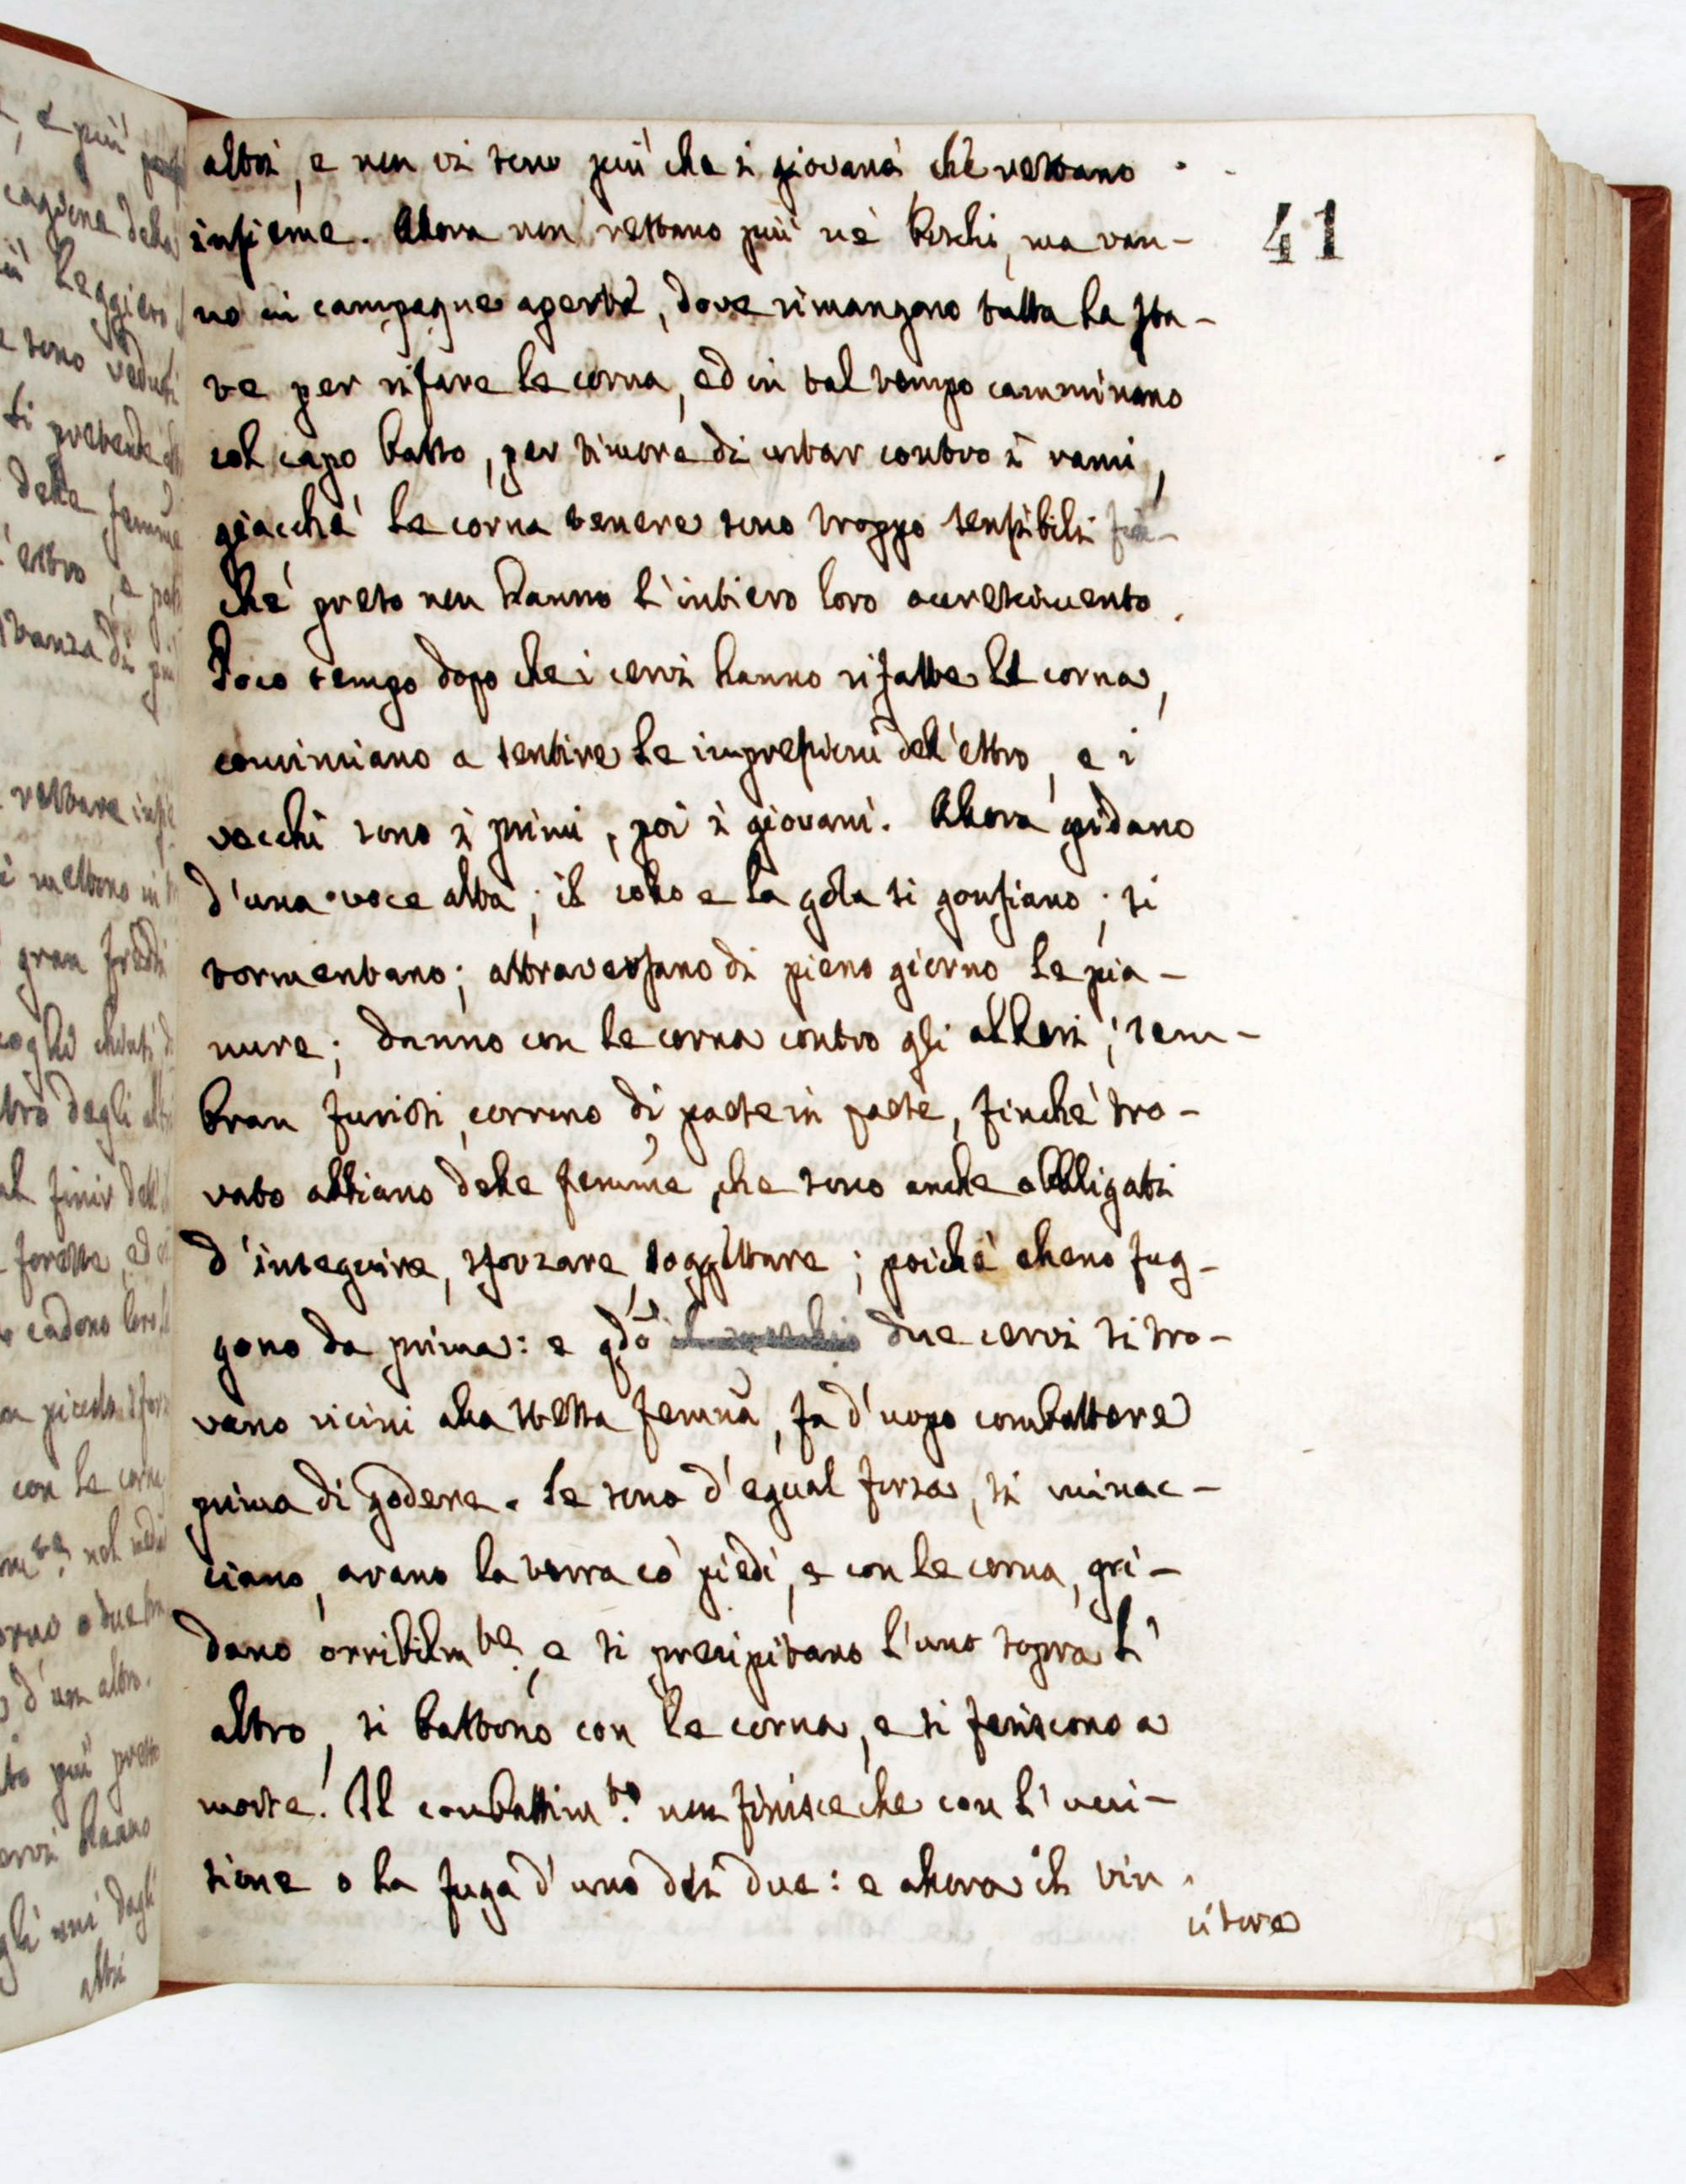 altri, e non vi sono più che i giovani che restano
41
insieme. Allora non restano più ne' boschi, ma van-
no in campagne aperte, dove rimangono tutta la sta-
te per rifare le corna, ed in tal tempo camminano
col capo basso, per timore di urtar contro i rami,
giacché le corna tenere sono troppo sensibili fin-
ché preso non hanno l'intiero loro accrescimento.
Poco tempo dopo che i cervi hanno rifatte le corna,
cominciano a sentire le impressioni dell'estro, e i
vecchi sono i primi, poi i giovani. Allora gridano
d'una voce alta; il collo e la gola si gonfiano; si
tormentano; attraversano di pieno giorno le pia-
nure; danno con le corna contro gli alberi; sem-
bran furiosi, corrono di paese in paese, finché tro-
vato abbiano delle femmine, che sono anche obbligati
d'inseguire, sforzare, soggettare; poiché elleno fug-
gono da prima: e qdo due cervi si tro-
vano vicini alla stessa femmina, fa d'uopo combattere
prima di godere. Se sono d'egual forza, si minac-
ciano, arano la terra co' piedi, e con le corna, gri-
dano orribilmte. e si precipitano l'uno sopra l'
altro, si battono con le corna, e si feriscono a
morte. Il combattimto. non finisce che con l'ucci-
sione o la fuga d'uno dei due: e allora il vin
citore
e più
cagione della
Leggiero
sono veduti
si pretende
delle femmine
estro, e
stanza di più
restare
si mettono in
gran freddi
degli
al finir dell
foreste, ed
cadono loro
piccola
con le corna
nel
o due
d'un altro.
più presto
cervi hanno
gli uni dagli
altri